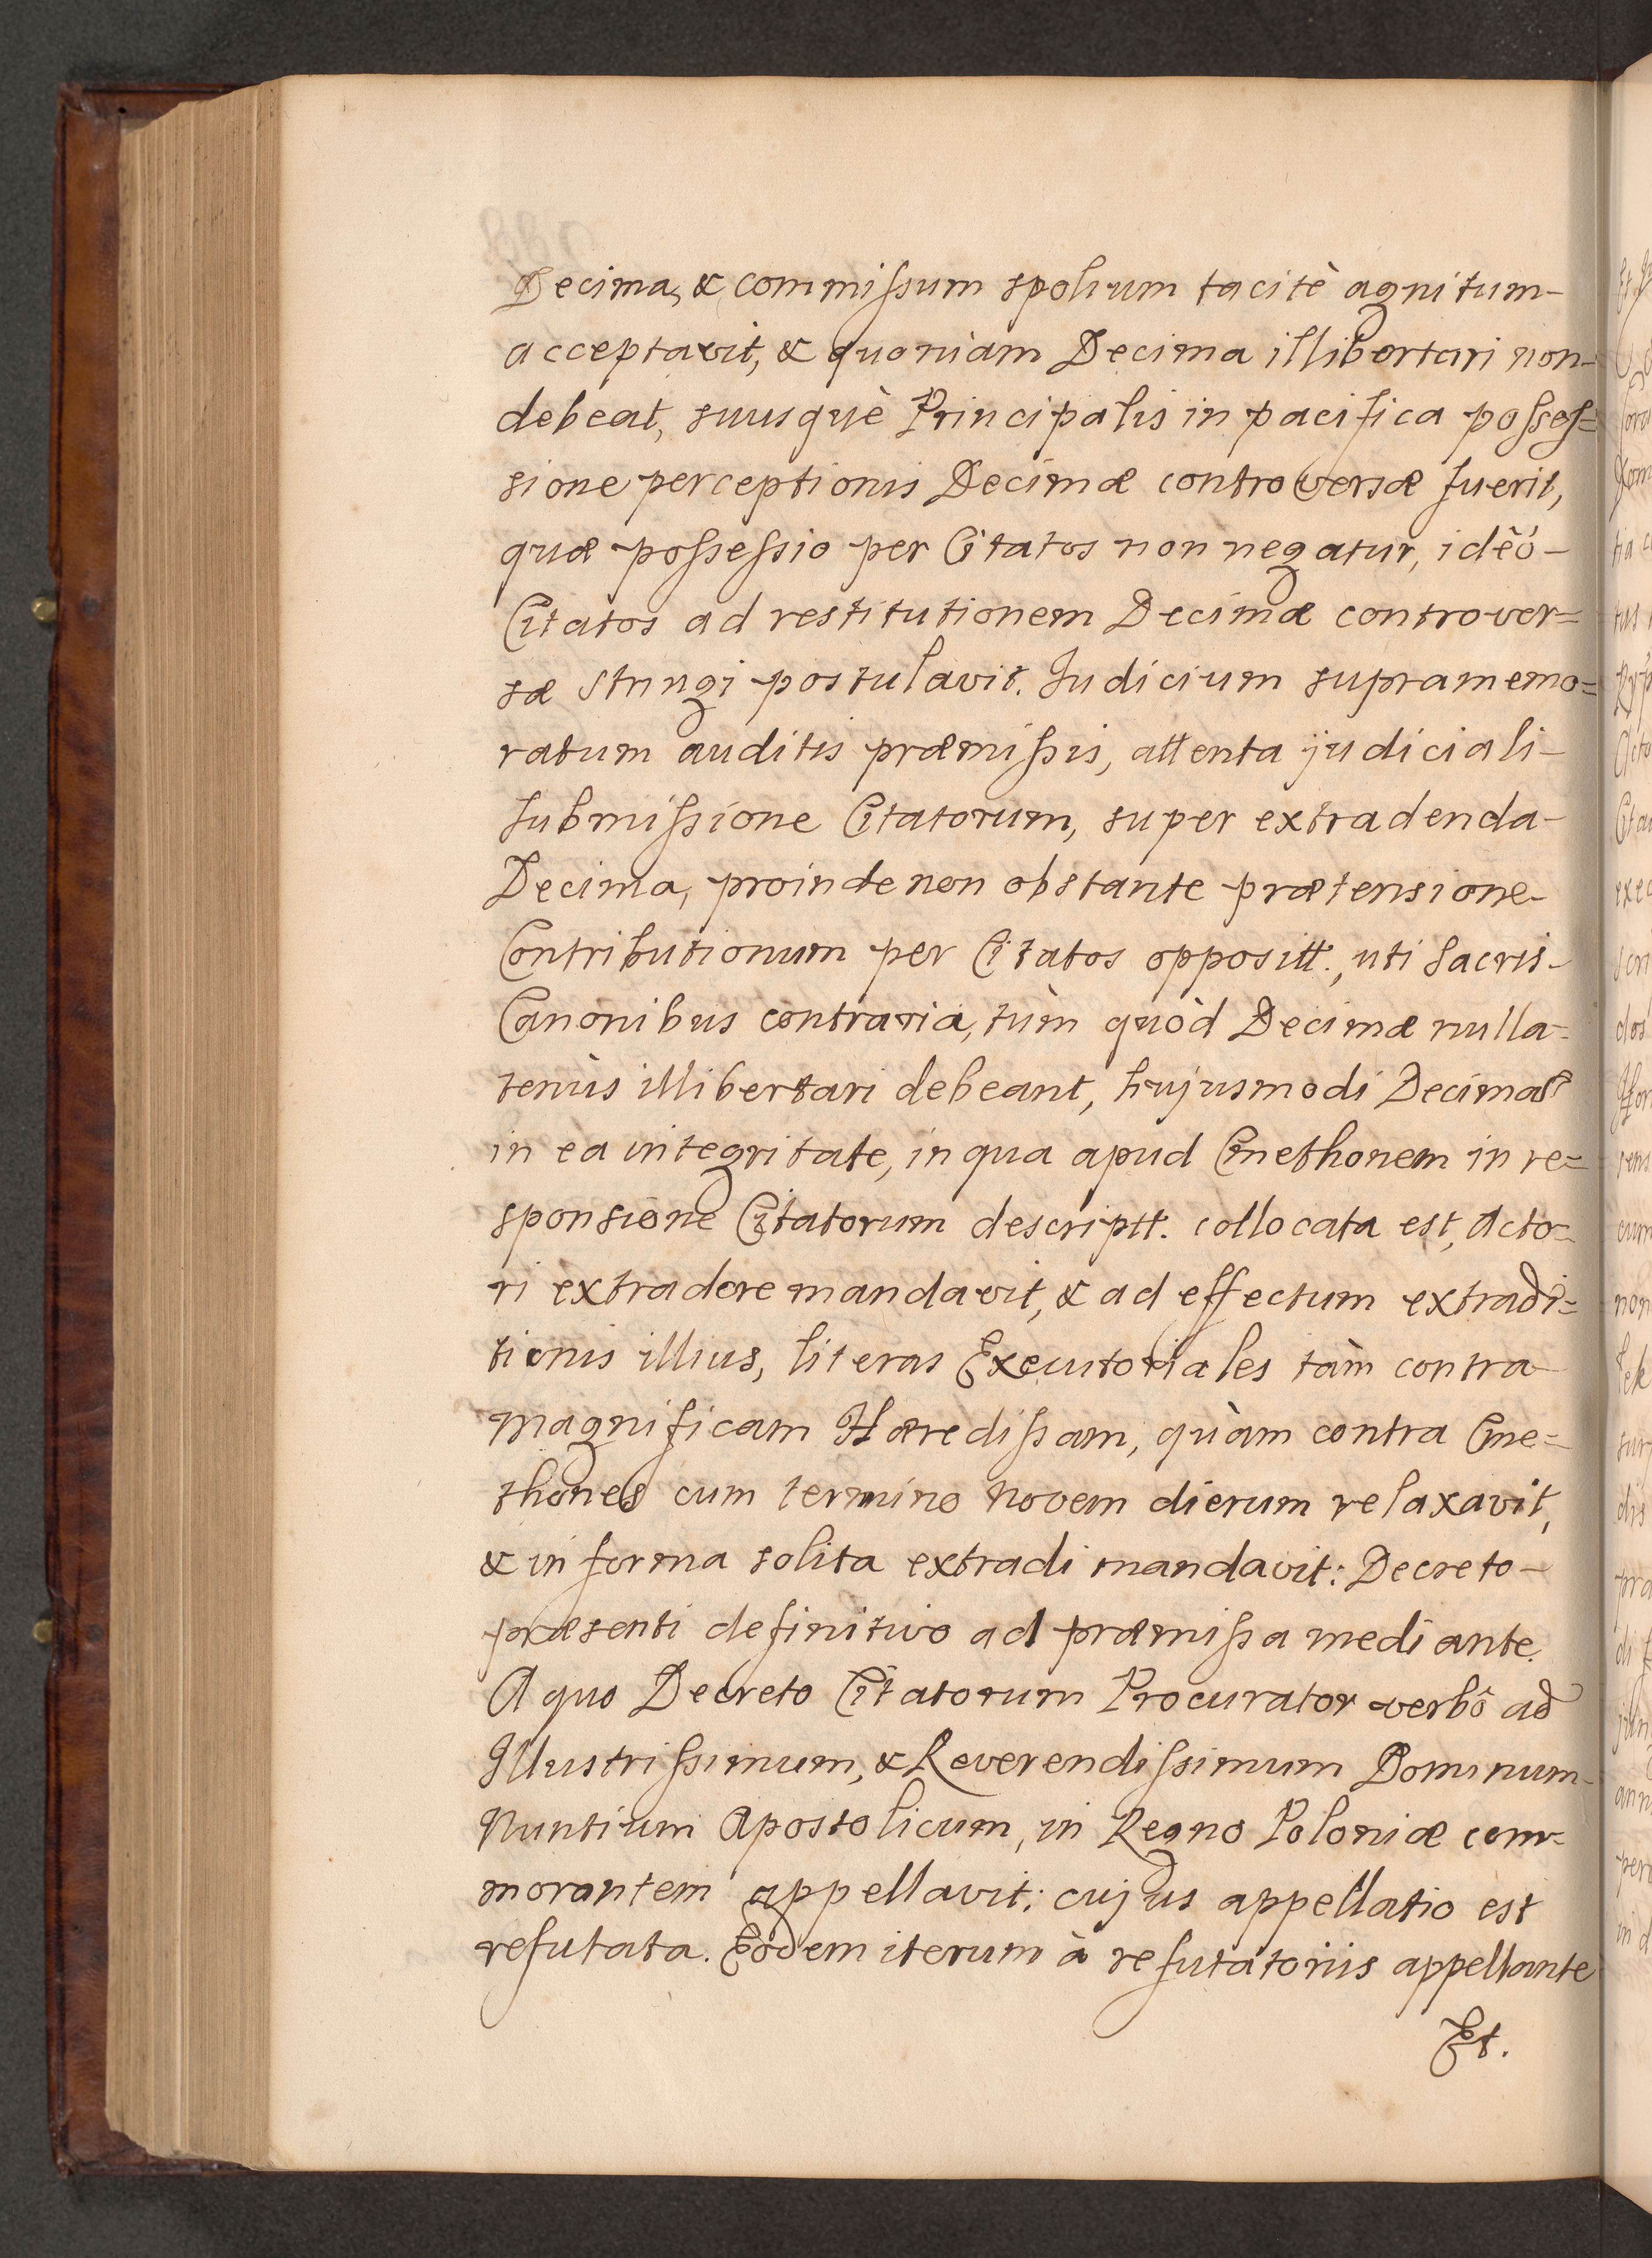 Decima, & commissum spolium tacitè agnitum-
acceptavit, & quoniam Decima illibertari non-
debeat, suusquè Principalis in pacifica posses=
sione perceptionis Decimæ controversæ fuerit,
quæ possessio per Citatos non negatur, ideó-
Citatos ad restitutionem Decimæ controver=
sæ stringi postulavit. Iudicium supramemo=
ratum auditis præmissis, attenta judiciali-
submissione Citatorum, super extradenda-
Decima, proinde non obstante prætensione-
Contributionum per Citatos opposítt., uti Sacris-
Canonibus contraria, tùm quòd Decimæ nulla=
tenùs illibertari debeant, hujusmodi Decimas
in ea integritate, in qua apud Cmethonem in re=
sponsione Citatorum descriptt. collocata est, Acto=
ri extradere mandavit, & ad effectum extradi=
tionis illius, literas Executoriales tàm contra-
magnificam Hæredissam, quàm contra Cme=
thones cum termino novem dierum relaxavit,
& in forma solita extradi mandavit: Decreto-
præsenti definitivo ad præmissa mediante.
A quo Decreto Citatorum Procurator verbô ad
Illustrissimum, & Reverendissimum Dominum-
Nuntium Apostolicum, in Regno Poloniæ com=
morantem appellavit: cujus appellatio est
refutata. Eodem iterum à refutatoriis appellante
Et.